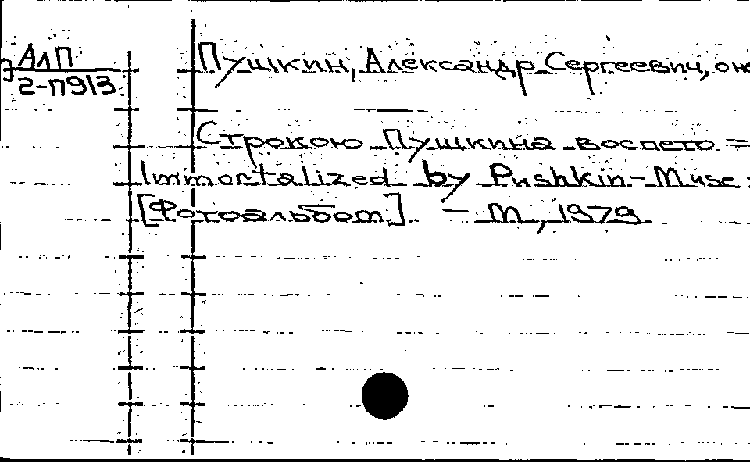 АлП
2-П913
Пушкин, Александр Сергеевич, о нем
Строкою Пушкина воспето =
Immortalized by Pushkin-Muse :
[Фотоальбом]. - М, 1979